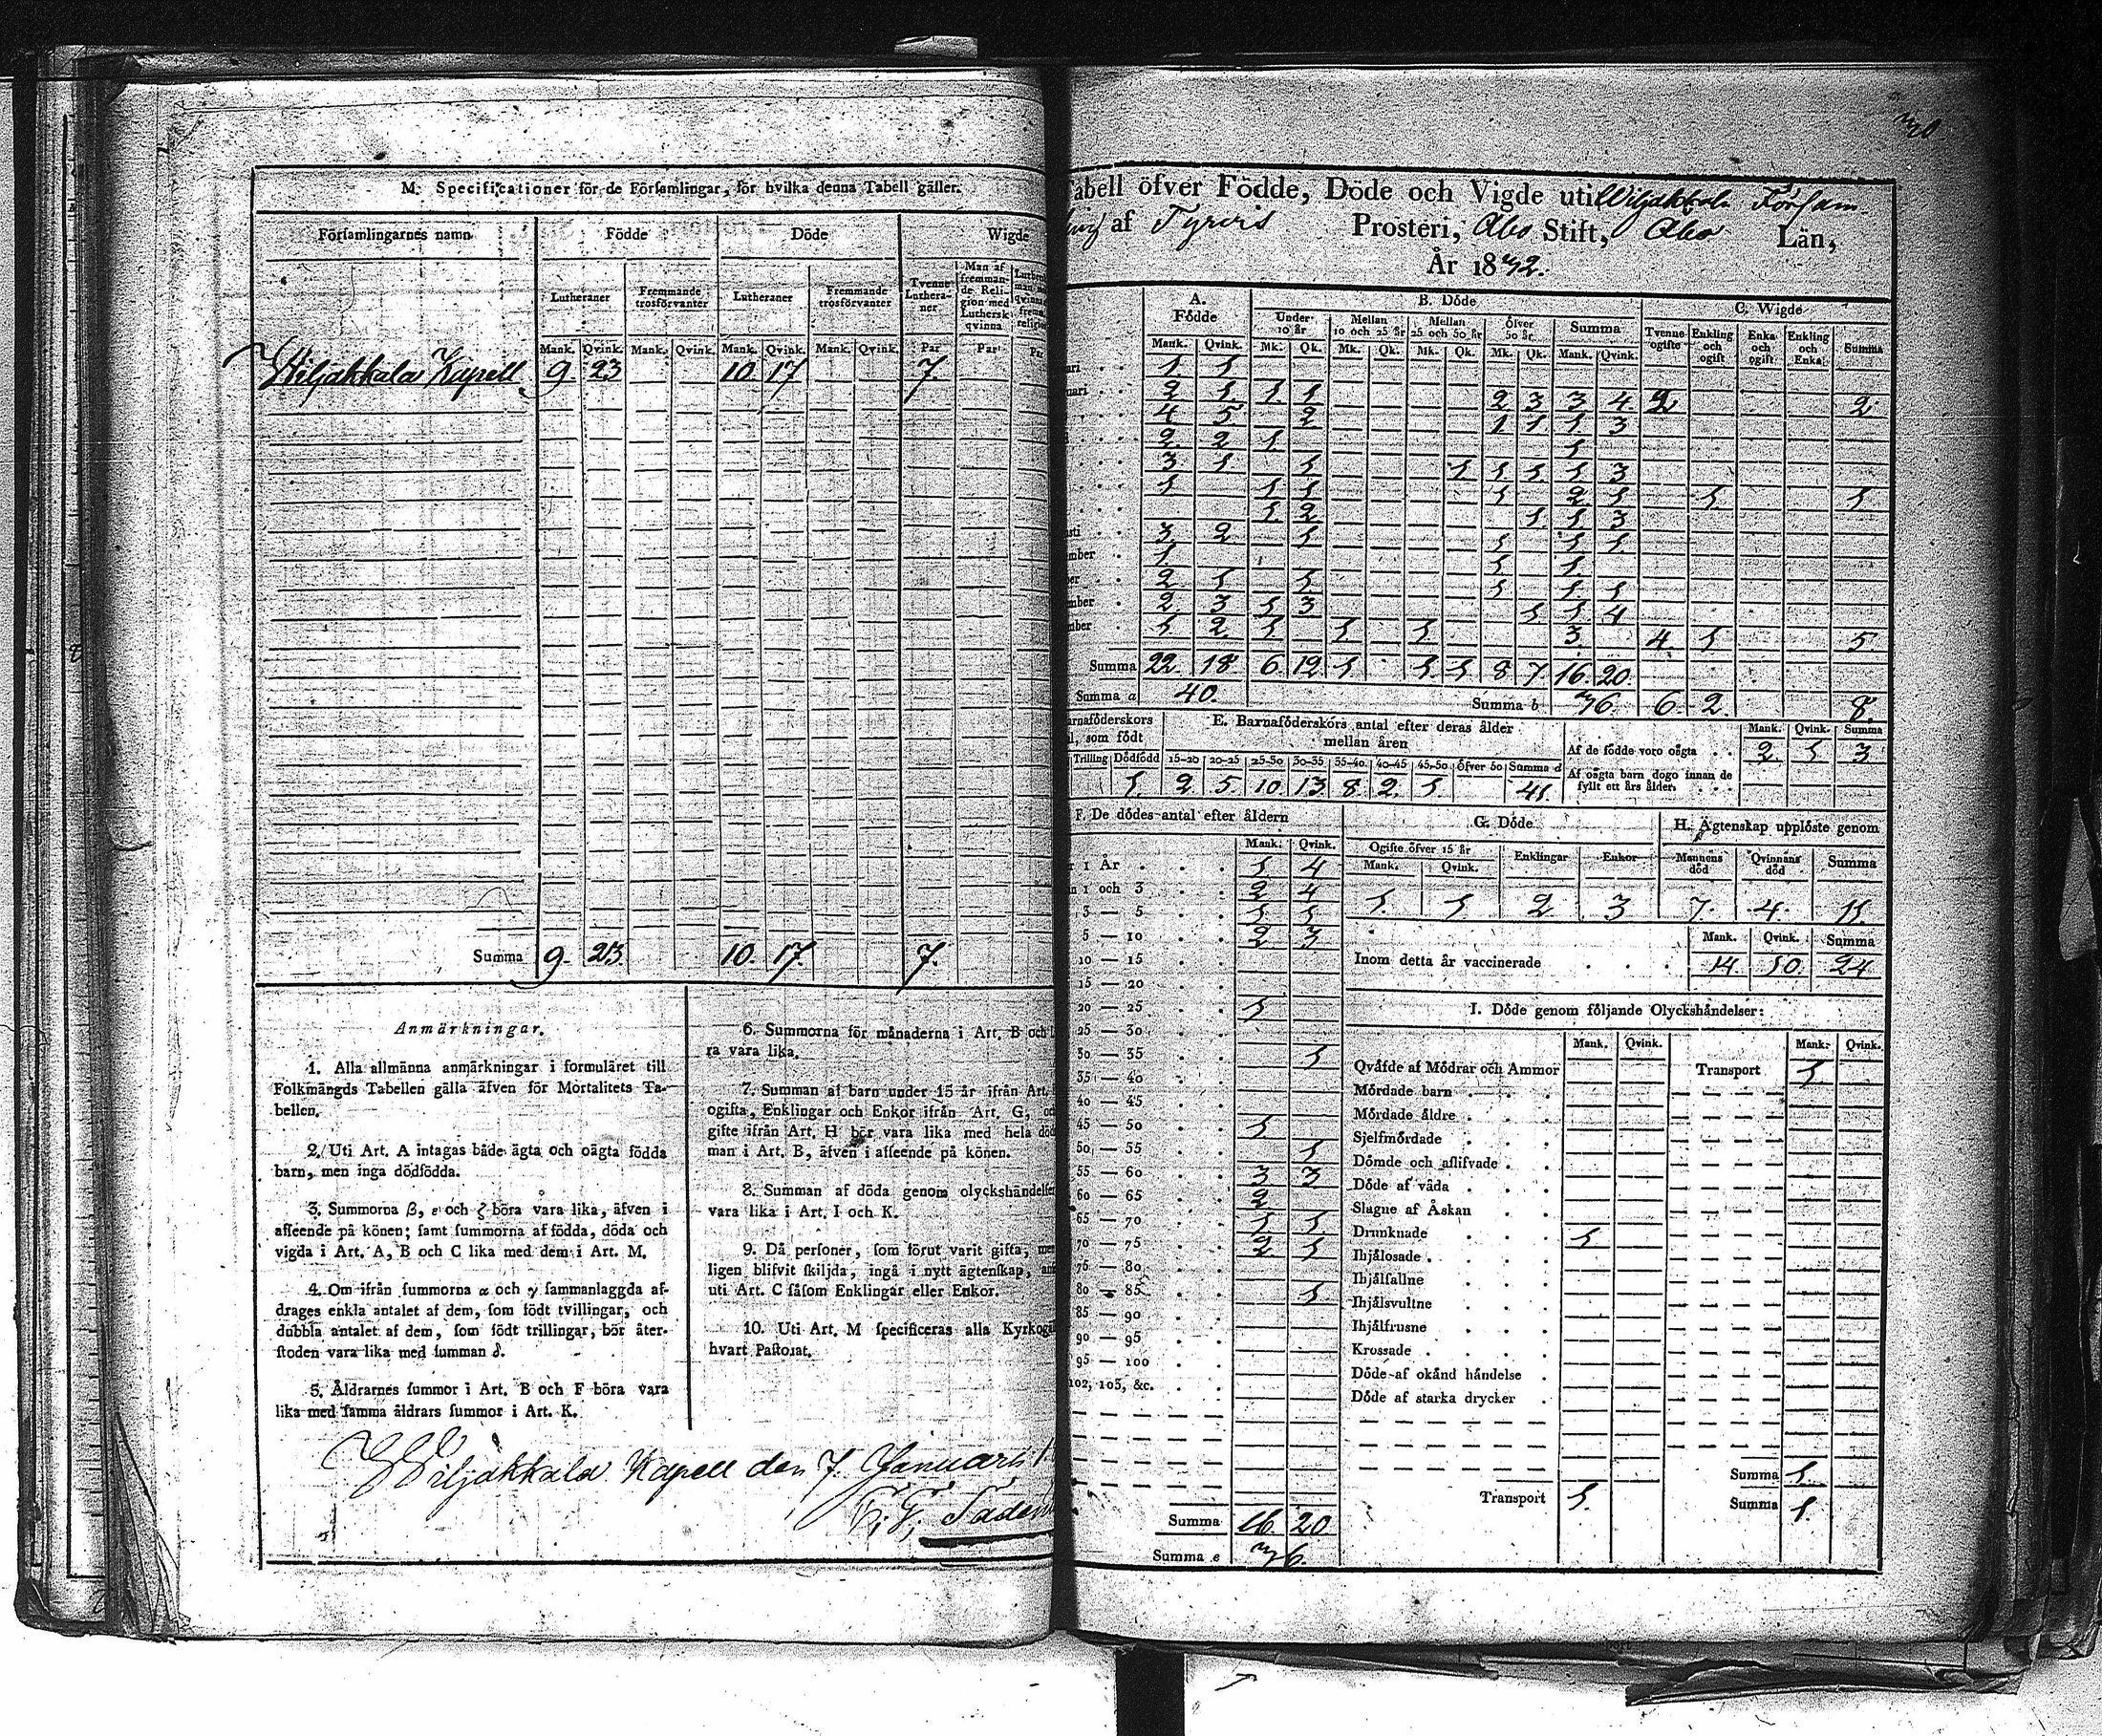 M. Specificationer för de Församlingar, för hvilka denna Tabell gäller.
Församlingarnes namn Födde Döde Wigde
Lutheraner Fremmande trosförvanter Lutheraner Fremmande trosförvanter Tvenne Lutheraner Man af fremmande Religion med Luthersk qvinna
Mank. Qvink. Mank. Qvink. Mank. Qvink. Mank. Qvink. Par Par Par
Wiljakkala Kapell 9. 23 10. 17 7.
Summa 9. 23. 10. 17. 7.
Anmärkningar.
1. Alla allmänna anmärkningar i formuläret till
Folkmängds Tabellen gälla äfven för Mortalitets Ta-
bellen.
2. Uti Art. A intagas både ägta och oägta födda
barn, men inga dödfödda.
3. Summorna β, ε och ζ böra vara lika, äfven i
afseende på könen; samt summorna af födda, döda och
vigda i Art. A, B och C lika med dem i Art. M.
4. Om ifrån summorna α och γ sammanlaggda af-
drages enkla antalet af dem, som födt tvillingar, och
dubbla antalet af dem, som födt trillingar, bör åter-
stoden vara lika med summan δ.
5. Åldrarnes summor i Art. B och F böra vara
lika med samma åldrars summor i Art. K.
6. Summorna för månaderna i Art. B och
ra vara lika.
7. Summan af barn under 15 år ifrån Art.
ogifta, Enklingar och Enkor ifrån Art. G,
gifte ifrån Art. H bör vara lika med hela
man i Art. B, äfven i afseende på könen.
8. Summan af döda genom olyckshändelser
vara lika i Art. I och K.
9. Då personer, som förut varit gifta,
ligen blifvit skiljda, ingå i nytt ägtenskap,
uti Art. C såsom Enklingar eller Enkor.
10. Uti Art. M specificeras alla
hvart Pastorat.
Wiljakkala Kapell den 7. Januarii
Tabell öfver Födde, Döde och Vigde uti Wiljakkala Församling
af Tyrvis Prosteri, Åbo Stift, Åbo Län,
År 1832.
A. Födde B. Döde C. Wigde
Under 10 år Mellan 10 och 25 år Mellan 25 och 50 år Öfver 50 år Summa Tvenne ogifte Enkling och ogift Enka och ogift Enkling och Enka Summa
Mank. Qvink. Mk. Qk. Mk. Qk. Mk. Qk. Mk. Qk. Mank. Qvink.
1 1
2 1 1 1 2 3 3 4 2 2
4 5 2 1 1 1 3
2 2 1 1
3 1 1 1 1 1 1 3
1 1 1 1 2 1 1 1
1 2 1 1 3
3 2 1 1 1 1
1 1 1
2 1 1 1 1 1
2 3 1 3 1 1 4
1 2 1 1 1 3 4 1 5
Summa 22. 18 6. 12 1 1 1 8 7. 16. 20.
Summa a 40. Summa b 36. 6. 2. 8.
E. Barnaföderskors antal efter deras ålder
mellan åren
Trilling Dödfödd 15-20 20-25 25-30 30-35 35-40 40-45 45-50 öfver 50 Summa d
1. 2. 5. 10. 13. 8. 2. 1. 41.
Mank. Qvink. Summa
Af de födde voro oägta 2 1 3
Af oägta barn dogo innan de
fyllt ett års ålder
F. De dödes antal efter åldern
Mank. Qvink.
1 År 1 4
1 och 3 2 4
3 — 5 1 1
5 — 10 2 3
10 — 15
15 — 20
20 — 25 1
25 — 30
30 — 35 1
35 — 40
40 — 45
45 — 50 1
50 — 55 1
55 — 60 3 3
60 — 65 2
65 — 70 1 1
70 — 75 2 1
75 — 80
80 — 85 1
85 — 90
90 — 95
95 — 100
102, 103, &c.
Summa 16. 20
Summa e 36.
G. Döde
Ogifte öfver 15 år Enklingar Enkor
Mank. Qvink.
1. 1 2 3
H. Ägtenskap upplöste genom
Mannens död Qvinnans död Summa
7. 4. 11.
Mank. Qvink. Summa
Inom detta år vaccinerade 14. 10. 24
I. Döde genom följande Olyckshändelser:
Mank. Qvink. Mank. Qvink.
Qväfde af Mödrar och Ammor Transport 1.
Mördade barn
Mördade äldre
Sjelfmördade
Dömde och aflifvade
Döde af våda
Slagne af Åskan
Drunknade 1
Ihjälosade
Ihjälfallne
Ihjälsvultne
Ihjälfrusne
Krossade
Döde af okänd händelse
Döde af starka drycker
Summa 1.
Transport 1. Summa 1.